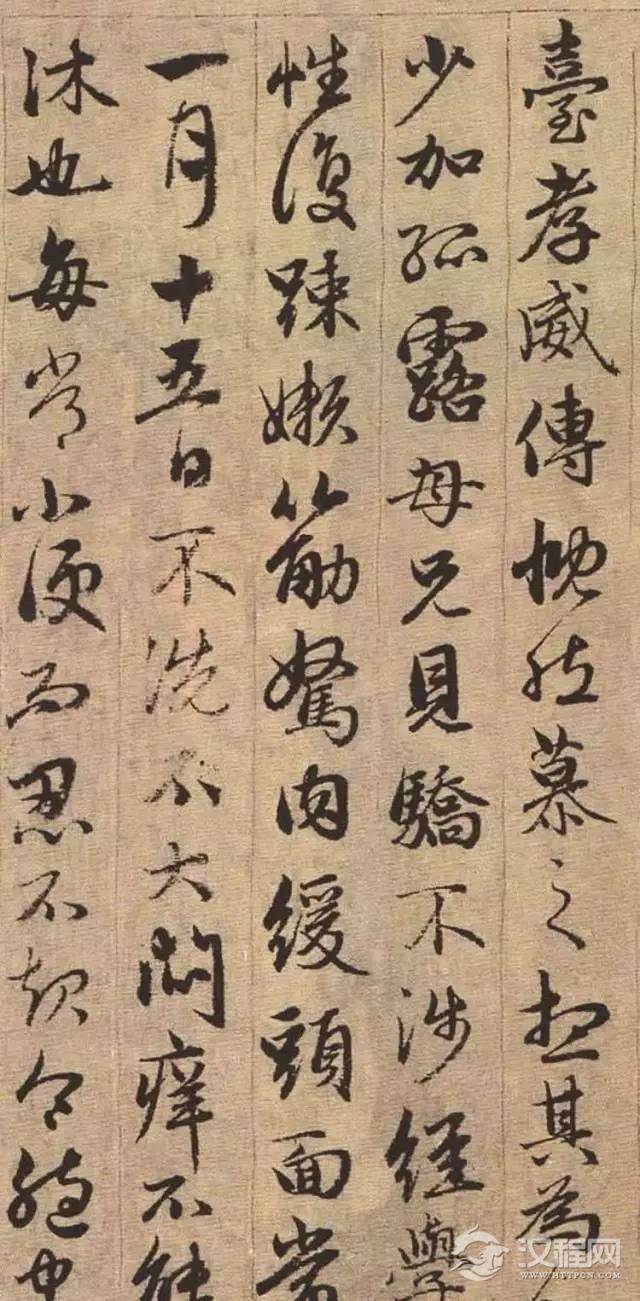 臺孝威傳慨然慕之想其為
少加孤露母兄見驕不涉經學
性復踈嬾筋駑肉緩頭面常
一月十五日不洗不大悶痒不能
沐也每常小便而忍不起令胞中
汉程网
WWW.HTTPCN.COM